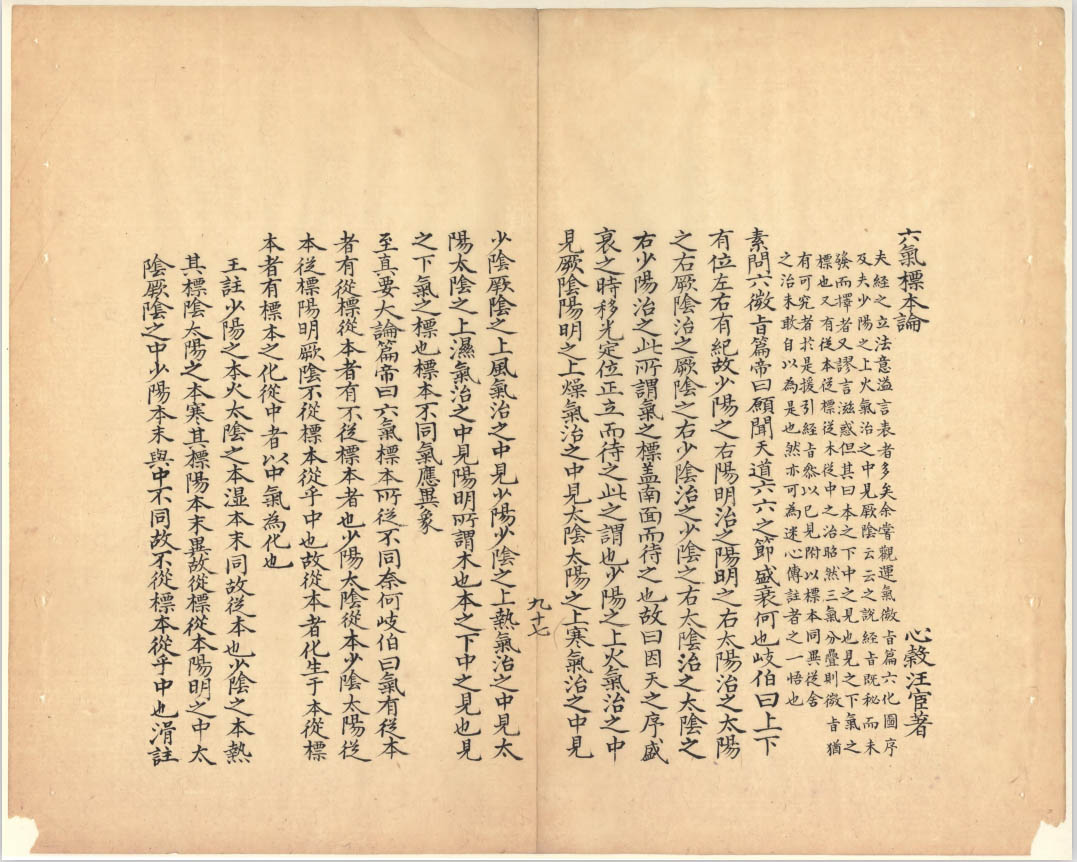 六氣標本論
心穀汪宦著
夫經之立法意溢言表者多矣余嘗觀運氣微旨篇六化圖序
及夫少陽之上火氣治之中見厥陰云云之說經旨既秘而未
發而擇者又謬言滋惑但其曰本之下中之見也見之下氣之
標也又有從本從標從末從中之治昭然三氣分疊則微旨猶
有可究者於是援引経旨叅以已見附以標本同異從舍
之治未敢自以為是也然亦可為迷心傳註者之一悟也
素問六微旨篇帝曰願聞天道六六之節盛衰何也岐伯曰上下
有位左右有紀故少陽之右陽明治之陽明之右太陽治之太陽
之右厥陰治之厥陰之右少陰治之少陰之右太陰治之太陰之
右少陽治之此所謂氣之標盖南面而待之也故曰因天之序盛
衰之時移光定位正立而待之此之謂也少陽之上火氣治之中
見厥陰陽明之上燥氣治之中見太陰太陽之上寒氣治之中見
九十七
少陰厥陰之上風氣治之中見少陽少陰之上熱氣治之中見太
陽太陰之上濕氣治之中見陽明所謂本也本之下中之見也見
之下氣之標也標本不同氣應異象
至真要大論篇帝曰六氣標本所從不同奈何岐伯曰氣有從本
者有從標從本者有不從標本者也少陽太陰從本少陰太陽從
本從標陽明厥陰不從標本從乎中也故從本者化生于本從標
本者有標本之化從中者以中氣為化也
王註少陽之本火太陰之本湿本末同故從本也少陰之本熱
其標陰太陽之本寒其標陽本末異故從標從本陽明之中太
陰厥陰之中少陽本末與中不同故不從標本從乎中也滑註